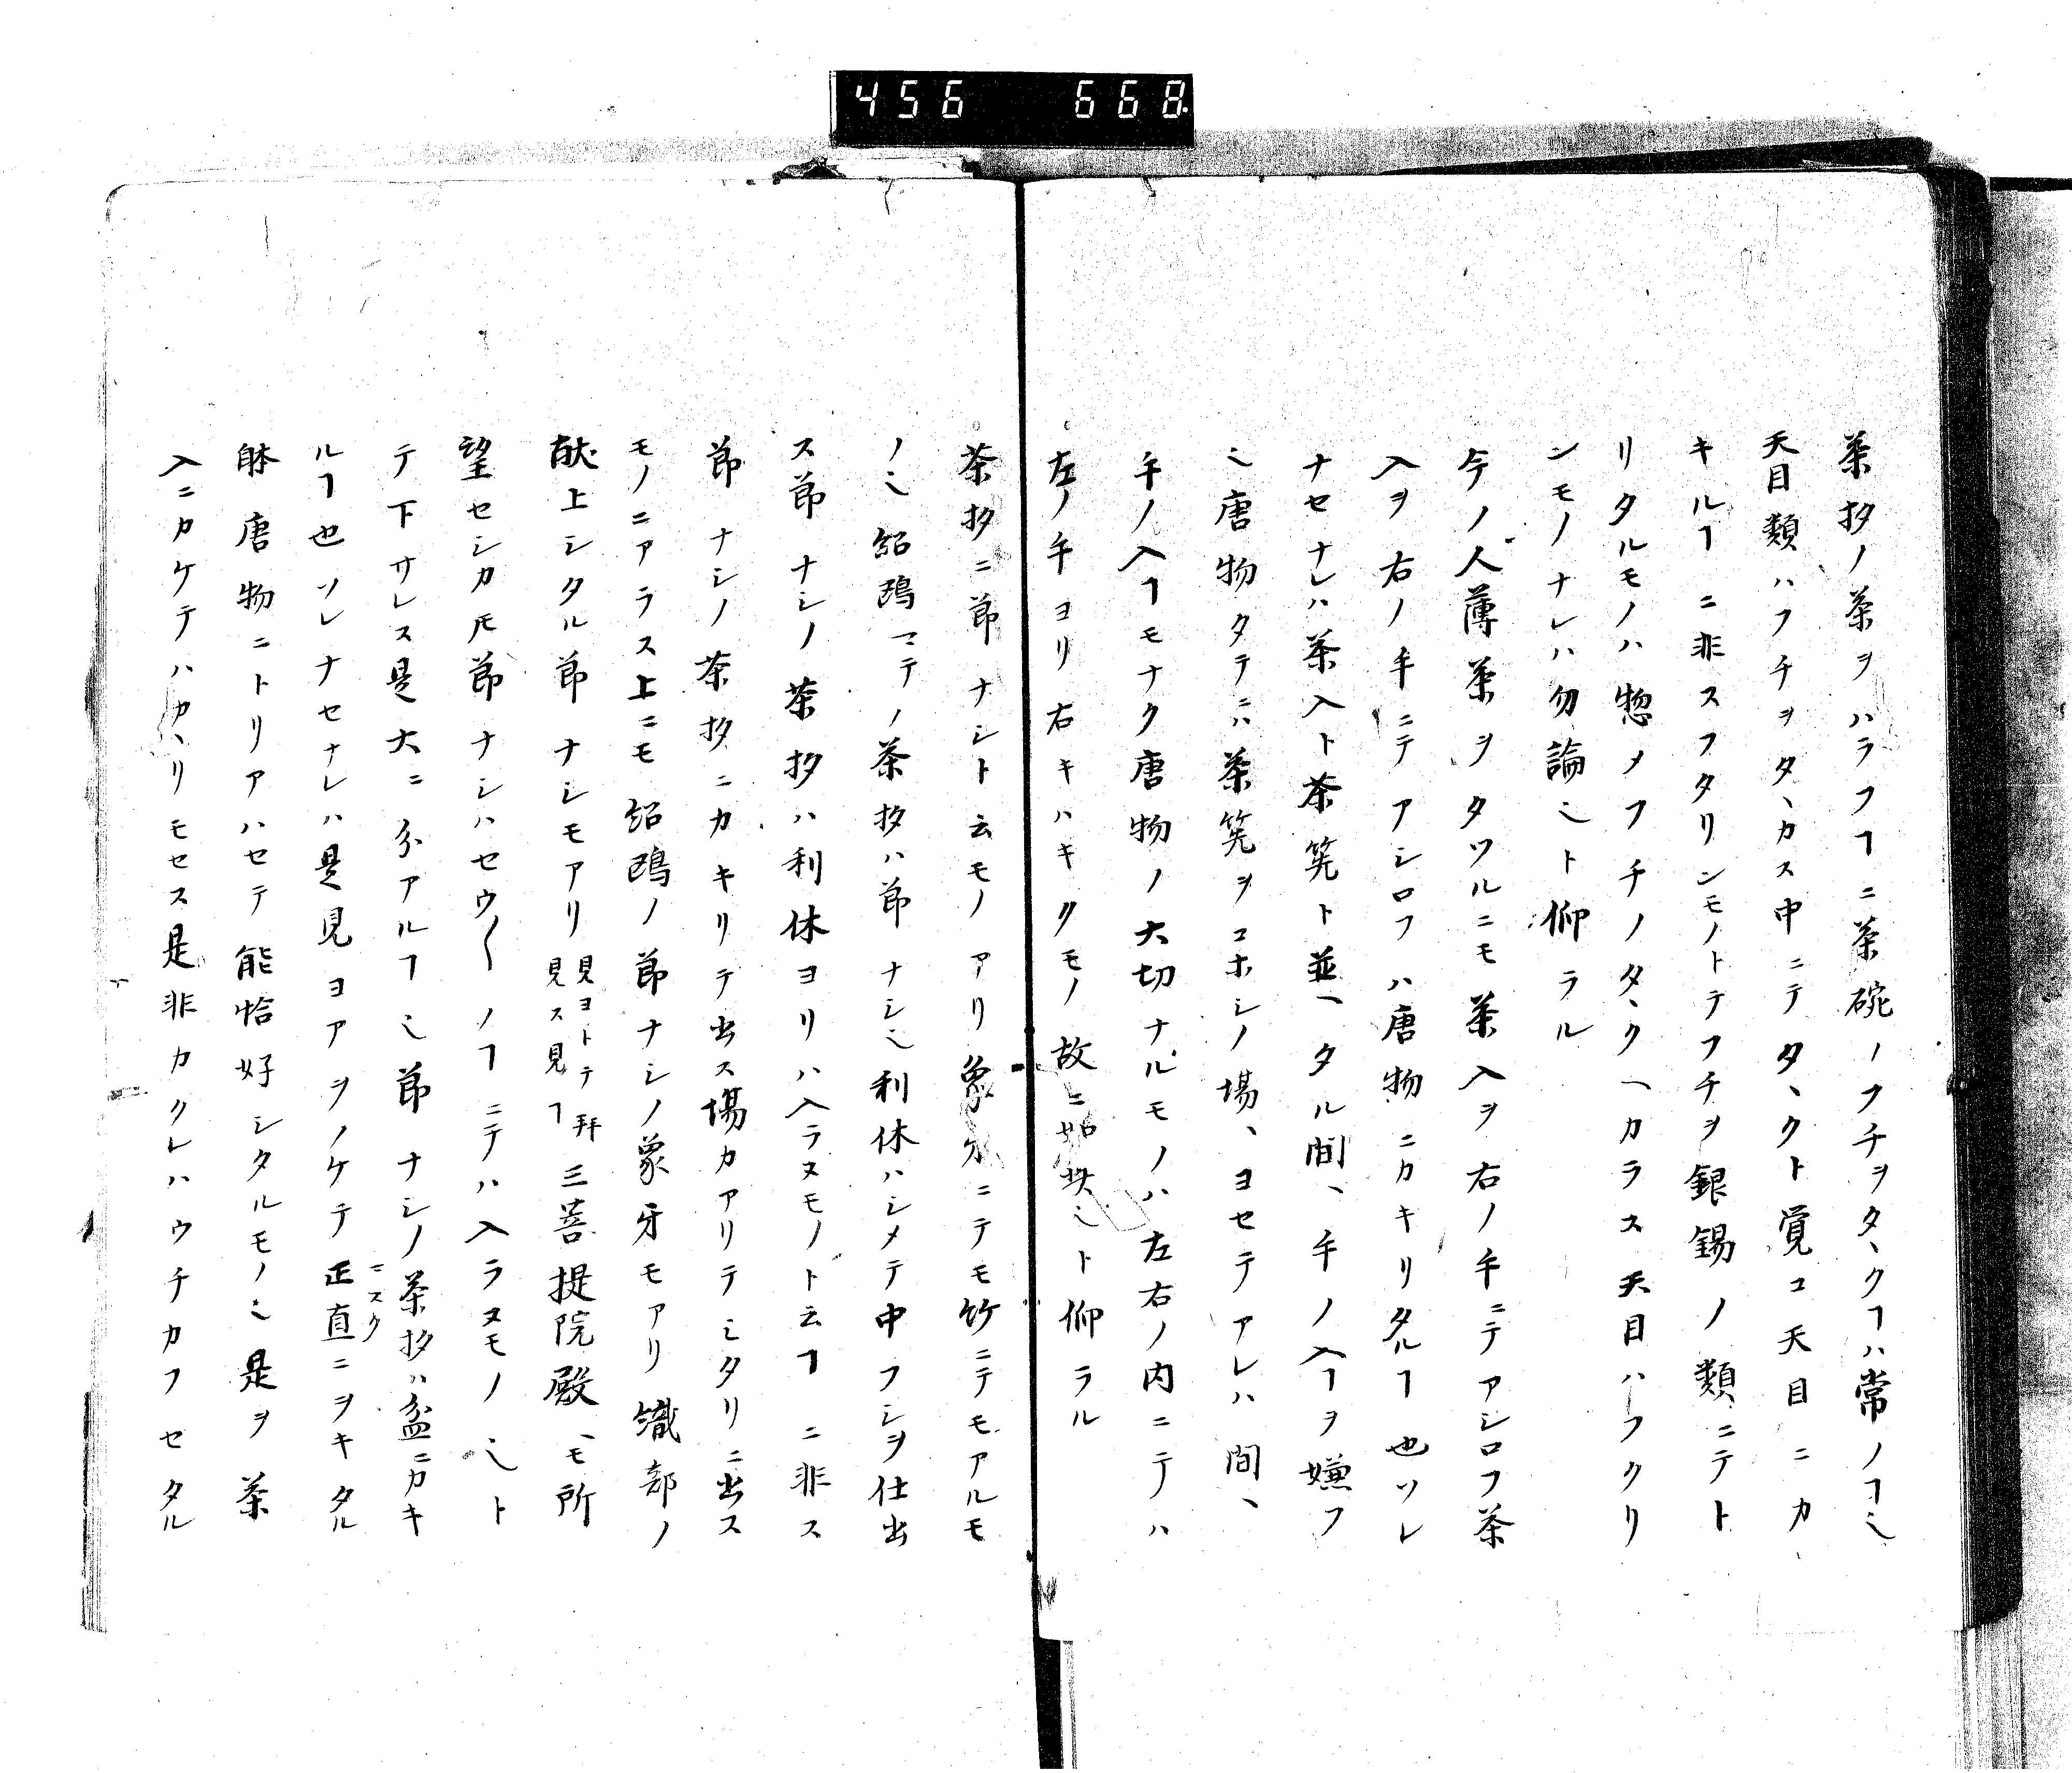 456 668
茶杓ノ茶ヲハラフヿニ茶碗ノフチヲタヽクヿハ常ノヿ也
天目類ハフチヲタヽカス中ニテタヽクト覚コ天目ニカ
キルヿニ非スフタリンモノトテフチヲ銀錫ノ類ニテト
リタルモノハ惣メフチノタヽクヘカラス天目ハフクリ
ンモノナレハ勿論也ト仰ラル
今ノ人薄茶ヲタツルニモ茶入ヲ右ノ手ニテアシロフ茶
入ヲ右ノ手ニテアシロフハ唐物ニカキリタルヿ也ソレ
ナセナレハ茶入ト茶筅ト並ヘタル間ヘ手ノ入ヿヲ嫌フ
也唐物タテニハ茶筅ヲコホシノ場ヘヨセテアレハ間ヘ
手ノ入ヿモナク唐物ノ大切ナルモノハ左右ノ内ニテハ
左ノ手ヨリ右キハキクモノ故ニ如此也ト仰ラル
茶杓ニ節ナシト云モノアリ象牙ニテモ竹ニテモアルモ
ノ也紹鴎マテノ茶杓ハ節ナシ也利休ハシメテ中フシヲ仕出
ス節ナシノ茶杓ハ利休ヨリハ入ラヌモノト云ヿニ非ス
節ナシノ茶杓ニカキリテ出ス場カアリテミタリニ出ス
モノニアラス上ニモ紹鴎ノ節ナシノ象牙モアリ織部ノ
献上シタル節ナシモアリ見ヨトテ拜見ス見ヿ三菩提院殿ヘモ所
望セシカ𪜈節ナシハセウ〱ノヿニテハ入ラヌモノ也ト
テ下サレス是大ニ分アルヿ也節ナシノ茶杓ハ盆ニカキ
ルヿ也ソレナセナレハ是見ヨアヲノケテ正直ニスクニヲキタル
躰唐物ニトリアハセテ能恰好シタルモノ也是ヲ茶
入ニカケテハカヽリモセス是非カクレハウチカフセタル